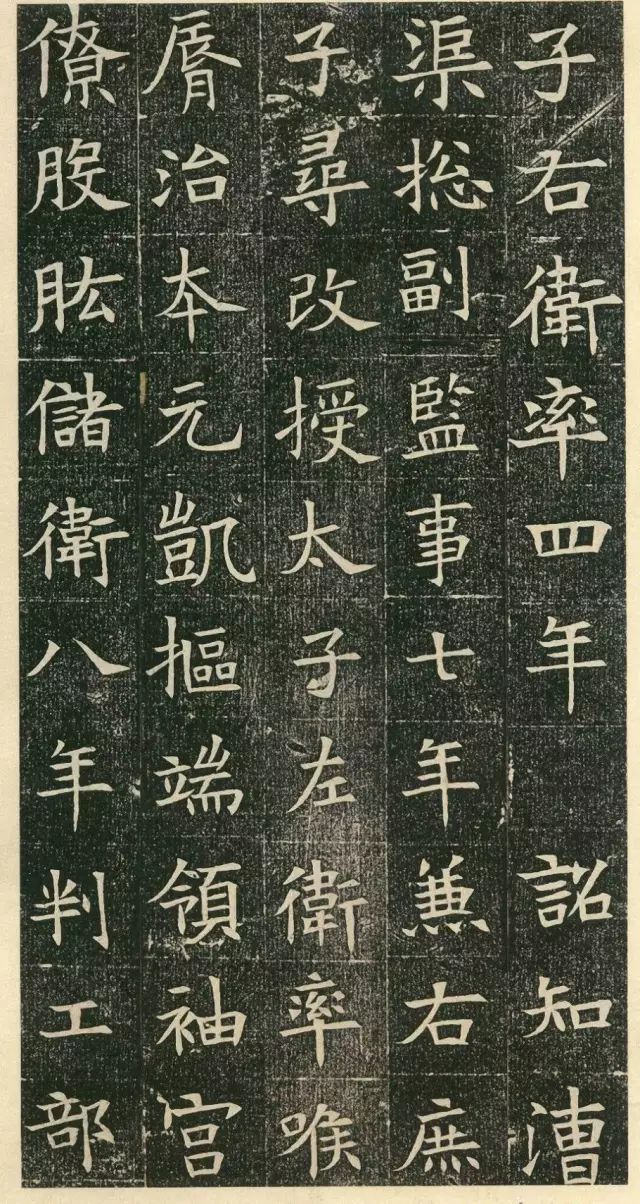 子右衛率四年詔知漕
渠揔副監事七年兼右庶
子尋改授太子左衛率喉
脣治本元凱摳端領袖宫
僚股肱儲衛八年判工部